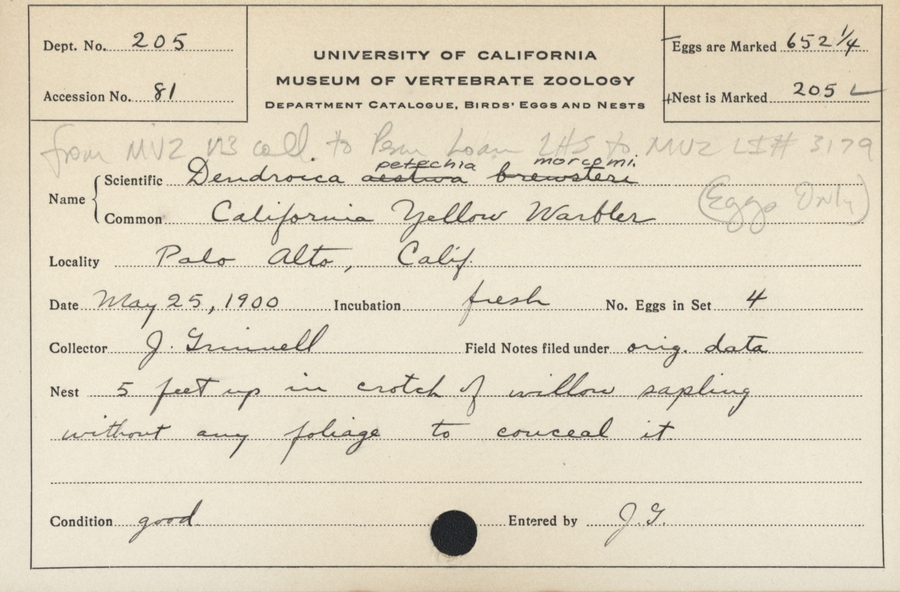 Dept. No. 205
Accession No. 81
UNIVERSITY OF CALIFORNIA
MUSEUM OF VERTEBRATE ZOOLOGY
DEPARTMENT CATALOGUE, BIRDS' EGGS AND NESTS
Eggs are Marked 652 1/4
Nest is Marked 205
from MVZ coll to Perm Loan LHS to MVZ LI# 3179
petechia morcomi
Name Scientific Dendroica aestiva brewsteri
(Eggs Only)
Common California Yellow Warbler
Locality Palo Alto, Calif.
Date May 25, 1900 Incubation fresh No. Eggs in Set 4
Collector J. Grinnell Field Notes filed under orig. data
Nest 5 feet up in crotch of willow sapling
without any foliage to conceal it
Condition good. Entered by J.G.